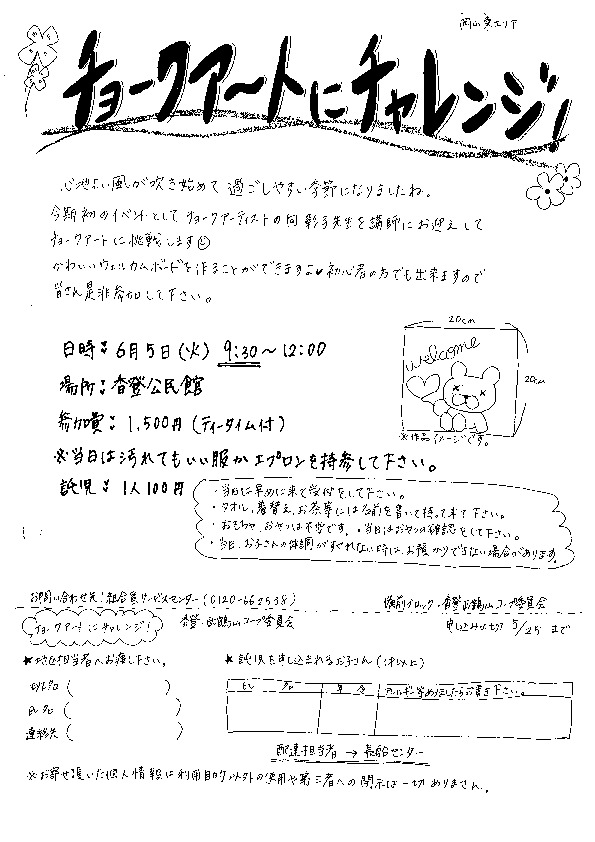 岡山東エリア
チョークアートにチャレンジ!
心地よい風が吹き始めて過ごしやすい季節になりましたね。
今期初のイベントとしてチョークアーティストの向 彰子先生を講師にお迎えして
チョークアートに挑戦します
かわいいウェルカムボードを作ることができますよ♥初心者の方でも出来ますので
皆さん是非参加して下さい。
日時:6月5日(火) 9:30～12:00
場所:香登公民館
参加費:1,500円(ティータイム付)
※当日は汚れてもいい服かエプロンを持参して下さい。
託児:1人100円
20cm
welcome
20cm
※作品イメージです。
・当日は早めに来て受付をして下さい。
・タオル、着替え、お茶等には名前を書いて持って来て下さい。
・おもちゃ、おやつは不要です。・当日はおやつの確認をして下さい。
・当日、お子さんの体調がすぐれない時は、お預かりできない場合があります。
お問い合わせ先:組合員サービスセンター(0120-662538)
備前ブロック・香登・鶴山コープ委員会
チョークアートにチャレンジ!
香登・鶴山コープ委員会
申し込み〆切 5/25 まで
★地区担当者へお渡し下さい。
氏名(
)
連絡先(
)
★託児を申し込まれるお子さん(1才以上)
氏 名
年 令
アレルギー等ありましたらお書き下さい。
配達担当者 → 長船センター
※お寄せ頂いた個人情報は利用目的以外の使用や第三者への開示は一切ありません。